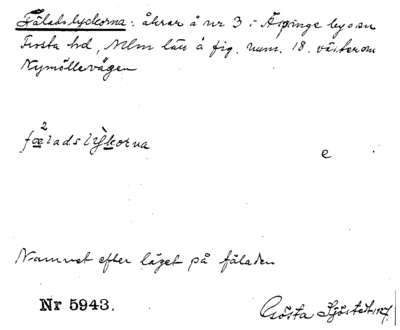 Fäladslyckorna: åkrar å nr 3 i Äspinge by o sn
Frosta hd, Mlm län å fig. num. 18. väster om
Nymöllevägen
fælads lykorna
e
Namnet efter läget på fäladen
Nr 5943.
Gösta Sjöstedt